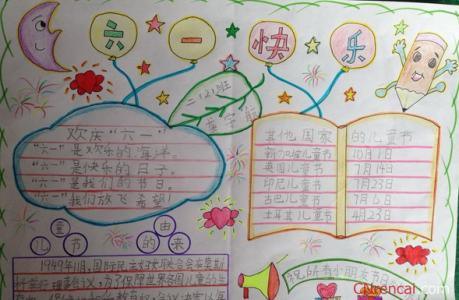 六一快乐
二(2)班
欢庆“六一”
“六一”是欢乐的海洋。
“六一”是快乐的日子。
“六一”是我们的节日。
“六一”我们放飞希望!
其他国家的儿童节
新加坡儿童节 10月1日
英国儿童节 7月14日
印尼儿童节 7月23日
古巴儿童节 7月6日
土耳其儿童节 4月23日
儿童节的由来
1949年11月,国际民主妇女联合会在莫斯
祝所有小朋友节日
CNrencai.com